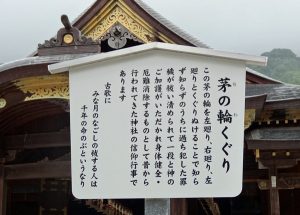 茅の輪くぐり
この茅の輪を左廻り、右廻り、左
廻りとくぐりぬけることで知ら
ず知らずのうちに過ち犯した罪
穢が祓い清められて一段と神の
ご加護がいただかれ身体健全・
厄難消除するものとして昔から
行われてきた神社の信仰行事で
あります
古歌に
みな月のなごしの祓する人は
千年の命のぶというなり